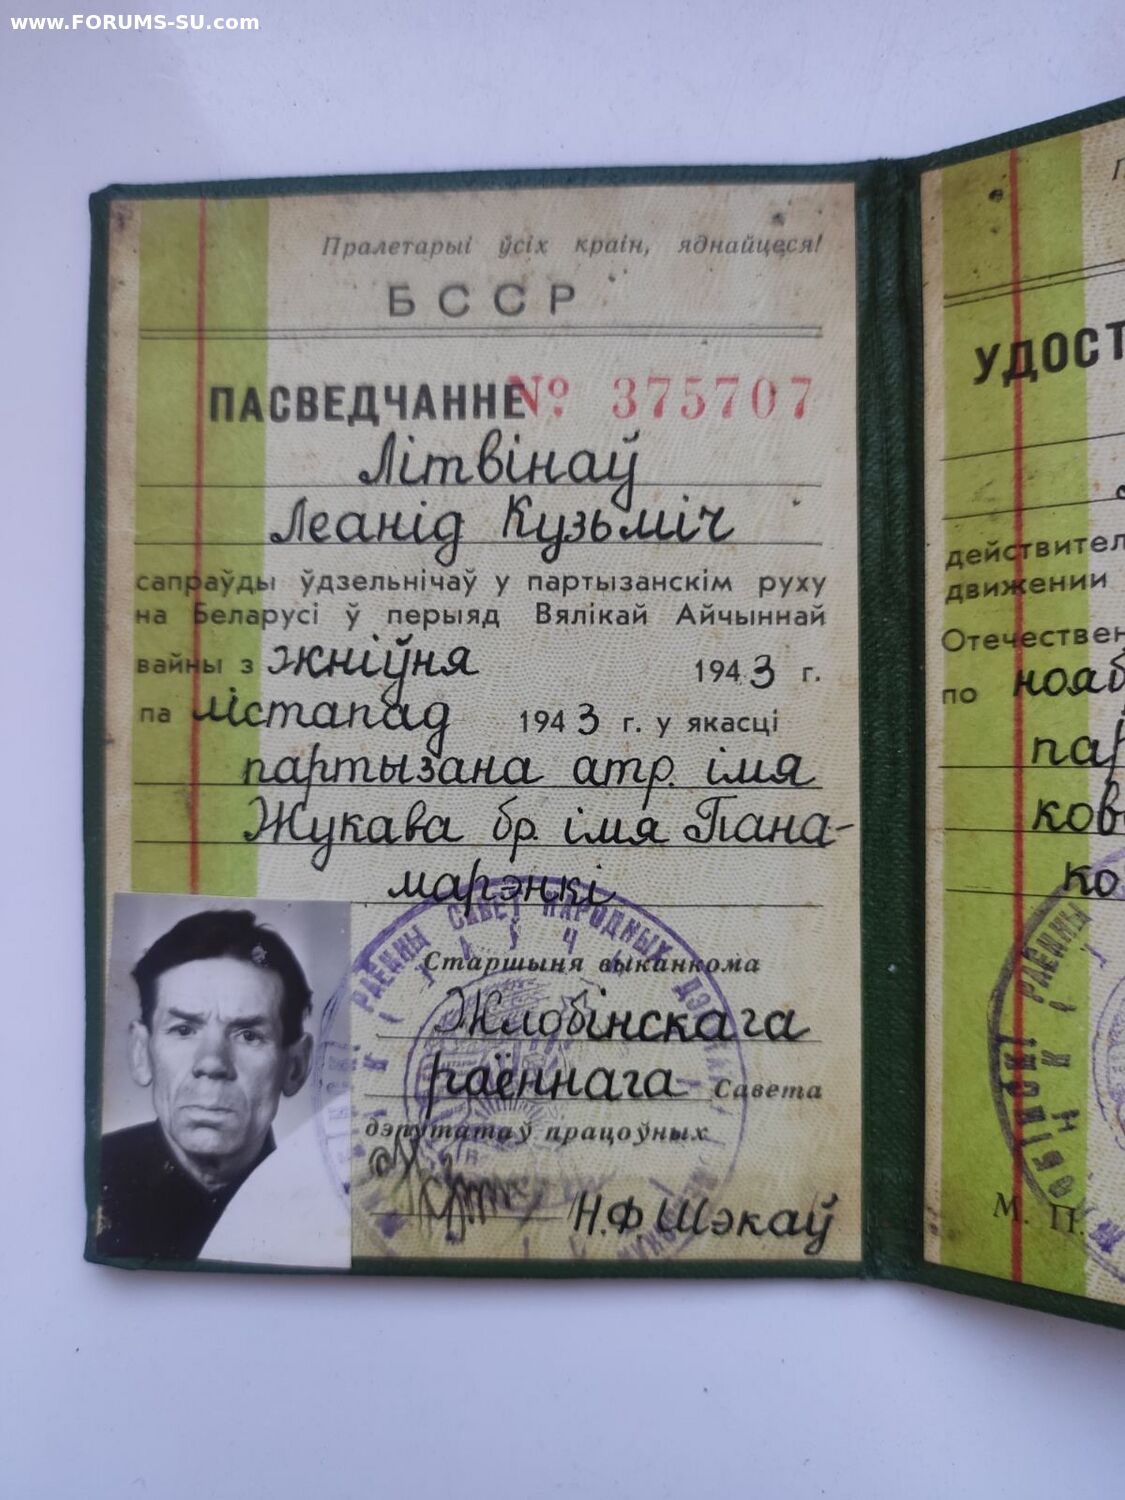 www.FORUMS-SU.com
Пралетарыі ўсіх краін, яднайцеся!
БССР
ПАСВЕДЧАННЕ № 375707
Літвінаў
Леанід Кузьміч
сапраўды ўдзельнічаў у партызанскім руху
на Беларусі ў перыяд Вялікай Айчыннай
вайны з жніўня 1943 г.
па лістапад 1943 г. у якасці
партызана атр. імя
Жукава бр. імя Пана-
марэнкі
Старшыня выканкома
Жлобінскага
раённага Савета
дэпутатаў працоўных
Н.Ф Шэкаў
РАЁННЫ САВЕТ НАРОДНЫХ
УДОСТ
действител
движении
Отечествен
по нояб
пар
ков
ко
РАЁННЫ
М. П.